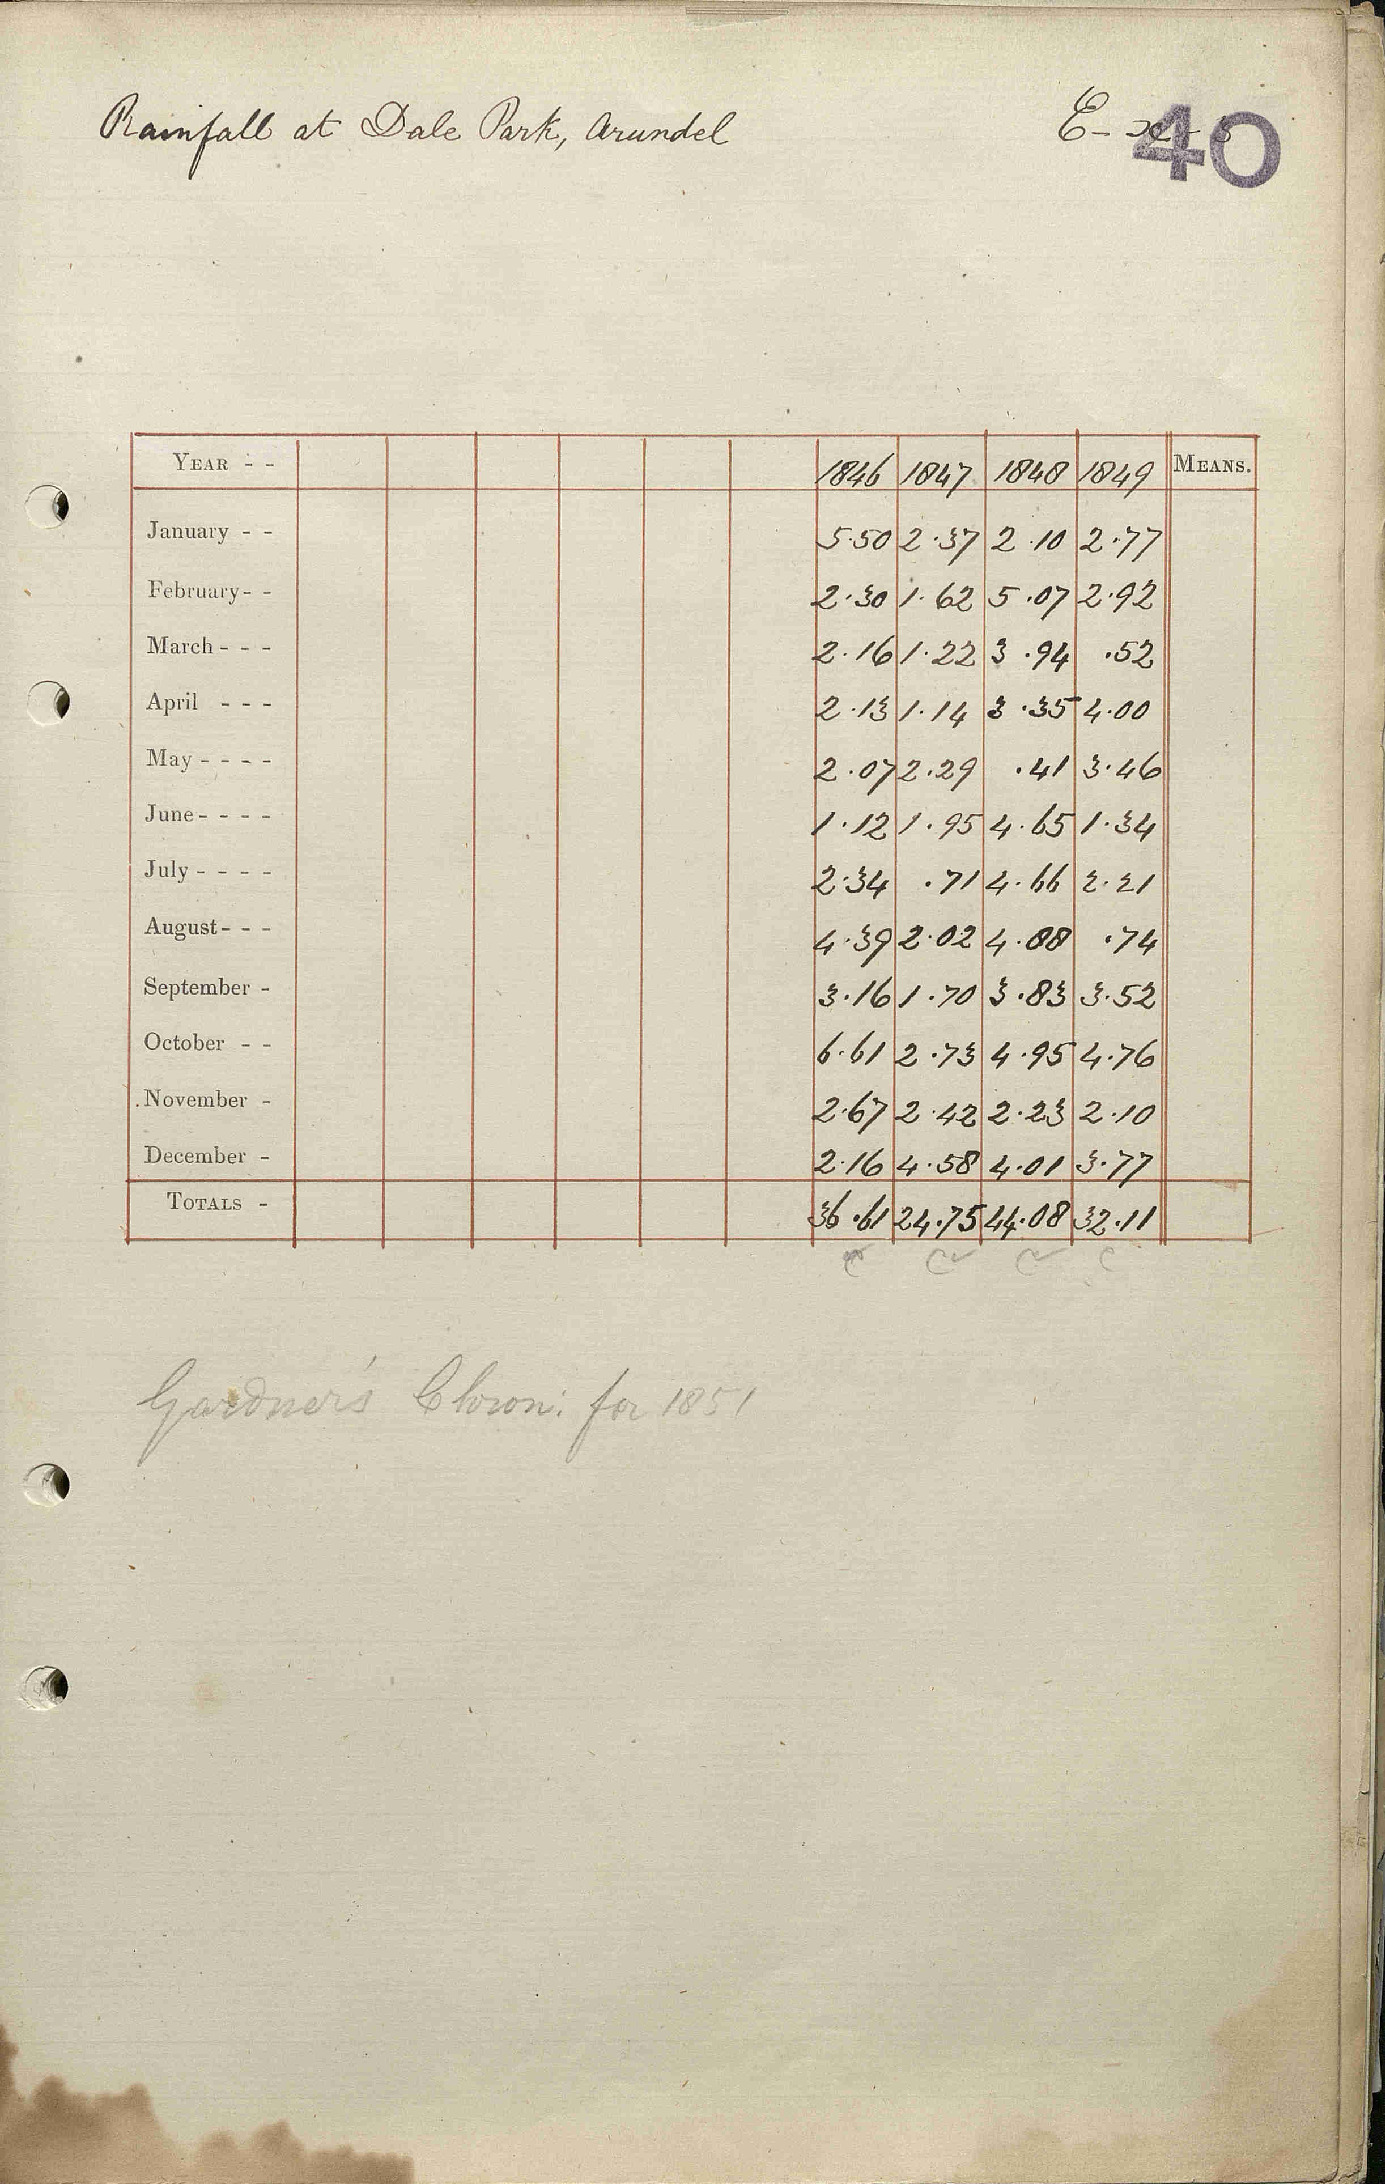 Rainfall at Dale Park, Arundel
40
YEAR - - 1846 1847 1848 1849 MEANS.
January - - 5.50 2.37 2.10 2.77
February - - 2.30 1.62 5.07 2.92
March - - - 2.16 1.22 3.94 .52
April - - - 2.13 1.14 3.35 4.00
May - - - - 2.07 2.29 .41 3.46
June - - - - 1.12 1.95 4.65 1.34
July - - - - 2.34 .71 4.66 2.21
August - - - 4.39 2.02 4.88 .74
September - 3.16 1.70 3.83 3.52
October - - 6.61 2.73 4.95 4.76
November - 2.67 2.42 2.23 2.10
December - 2.16 4.58 4.01 3.77
TOTALS - 36.61 24.75 44.08 32.11
Gardner's Chron: for 1851